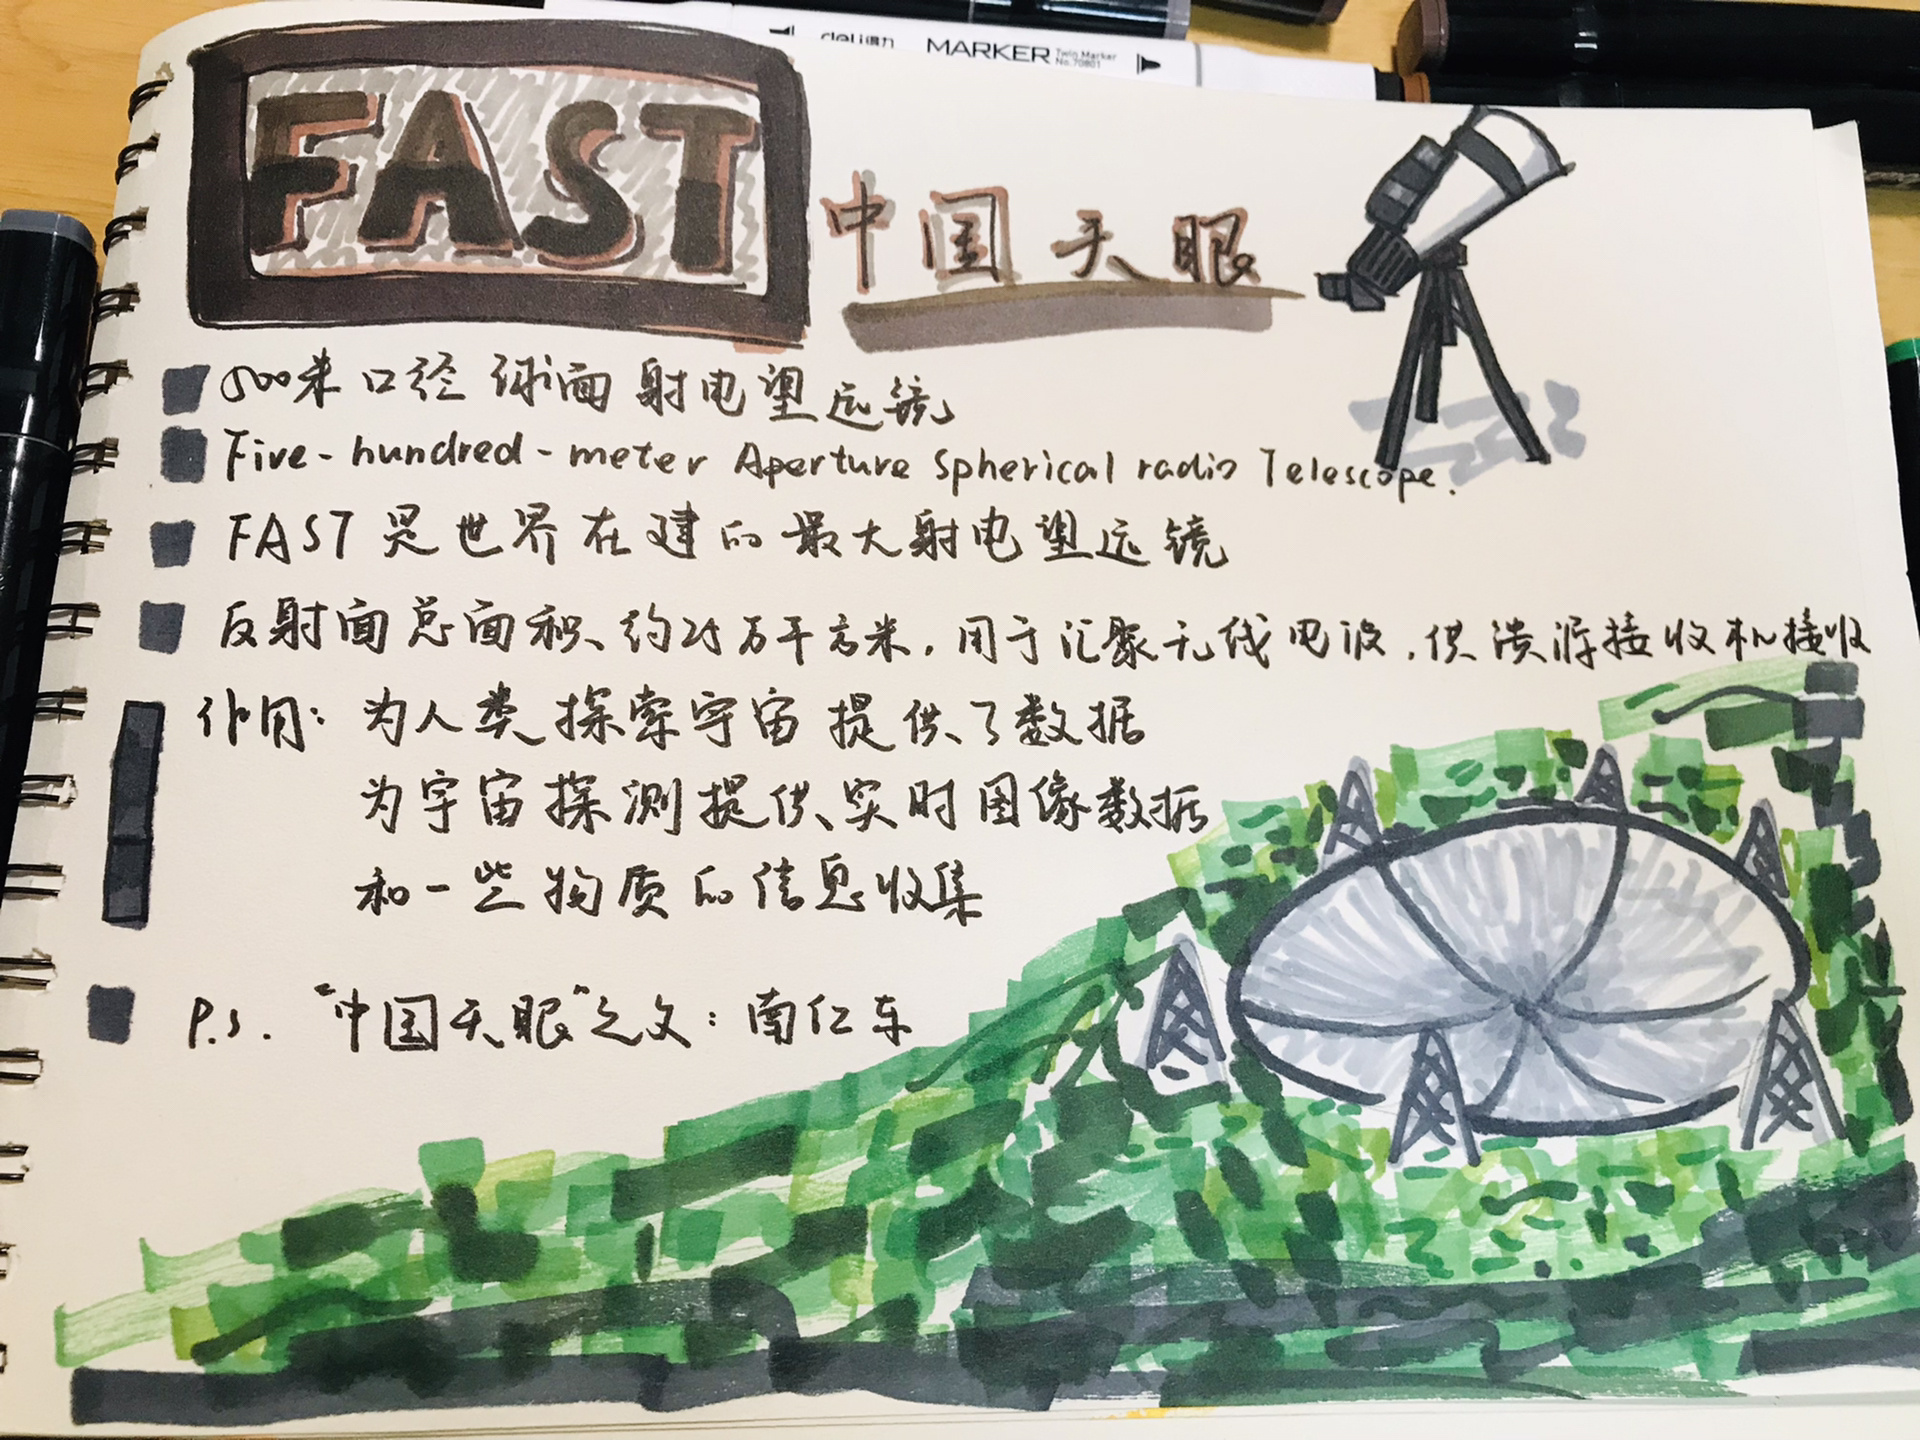 deli得力 MARKER Twin Marker No.70801
FAST 中国天眼
500米口径球面射电望远镜
Five-hundred-meter Aperture Spherical radio Telescope.
FAST是世界在建的最大射电望远镜
反射面总面积、约25万平方米,用于汇聚无线电波,供溃源接收机接收
作用:为人类探索宇宙提供了数据
为宇宙探测提供实时图像数据
和一些物质的信息收集
P.S. "中国天眼"之父:南仁东